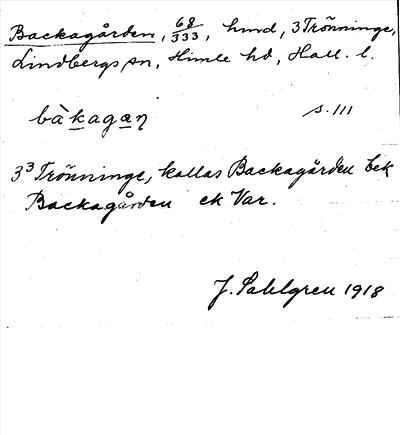 Backagården, 68/333, hmd, 3 Trönninge,
Lindbergs sn, Himle hd, Hall. l.
bàkagan̥
s. 111
3³ Trönninge, kallas Backagården bek
Backagården ek Var.
J. Sahlgren 1918